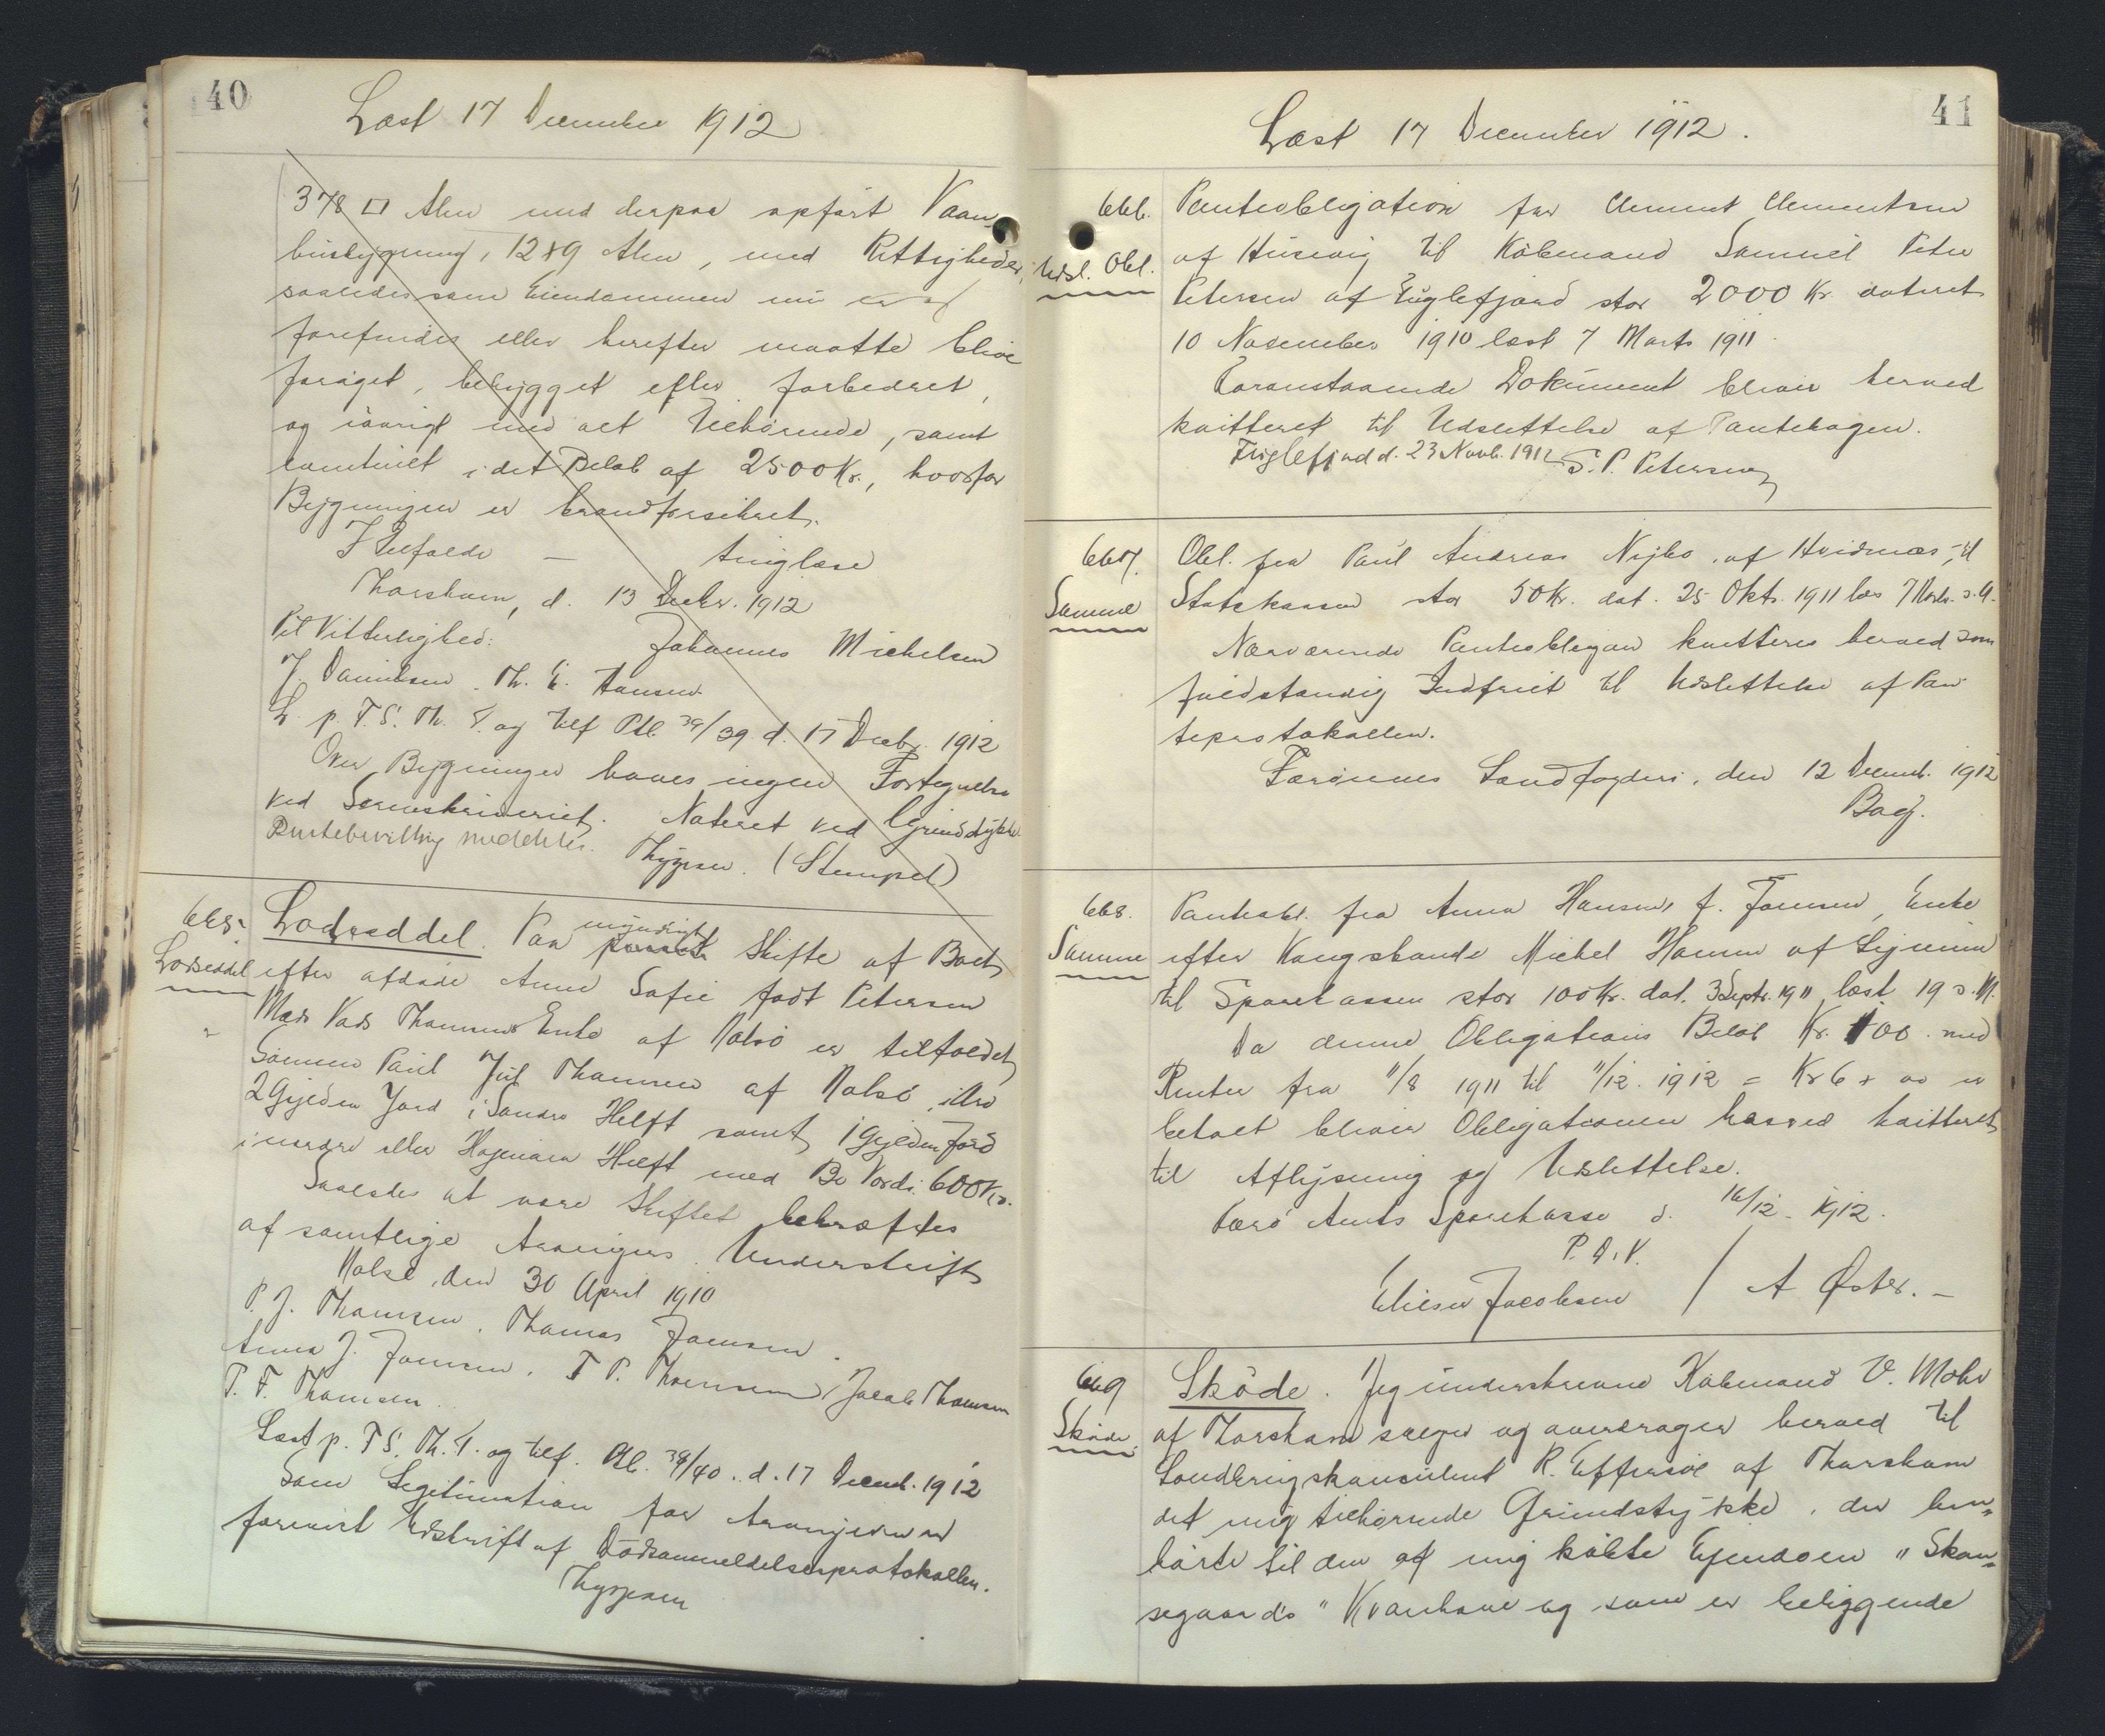 40
Læst 17 December 1912
378 □ Alen med derpaa opført Vaan-
husbygning, 12x9 Alen, med Rettigheder,
saaledes som Eiendommen nu er og
forefindes eller herefter maatte blive
forøget, bebygget eller forbedret,
og iøvrigt med alt Tilhørende, samt
i det Beløb af 2500 Kr., hvorfor
Bygningen er brandforsikret.
I Tilfælde — tinglæse
Thorshavn, d. 13 Decbr. 1912
Til Vitterlighed: Johannes Michelsen
J. Danielsen. Th. E. Hansen.
L. p. T. S. Th. T. og tilf Ptl. 39/39 d. 17 Decbr. 1912
Over Bygninger haves ingen Fortegnelse
ved Sorenskriveriet. Noteret ved Grundstykke
Pantebevilling meddeles. Thygesen. (Stempel)
665.
Lodseddel
Lodseddel. Paa mindeligt privat Skifte af Boet
efter afdøde Anne Sofie født Petersen
Mads Thomsens Enke af Nolsø er tilfaldet
Sønnen Paul Jul Thomsen af Nolsø i Arv
2 Gylden Jord i Søndre Helft samt 1 Gylden Jord
i nordre eller Helft med Bo Værdi 600 Kr.
Saaledes at være skiftet bekræftes
af samtlige Arvingers Underskrift
Nolsø, den 30 April 1910
P. J. Thomsen. Thomas Joensen.
Anna J. Joensen. T P. Thomsen, Jacob Thomsen
P. F. Thomsen.
Læst p. T S. Th. T. og tilf. Ptl. 39/40. d. 17 Decemb. 1912
Som Legitimation for Arvingerne er
forevist Udskrift af Dødsanmeldelsesprotokollen.
Thygesen
41
Læst 17 December 1912.
666.
Udsl. Obl.
Panteobligation fra Clement Clementsen
af Husevig til Købmand Samuel Peter
Petersen af Fuglefjord stor 2000 Kr. dateret
10 November 1910 læst 7 Marts 1911.
Foranstaaende Dokument bliver herved
kvitteret til Udslettelse af Pantebogen.
Fuglefjord d. 23 Novb. 1912 S. P. Petersen
667.
Samme
Obl. fra Paul Andreas Nybo af Hvidenæs, til
Statskassen stor 50 Kr. dat. 25 Okt. 1911 læs 7 Novb. s. A.
Nærværende Panteobligaon kvitteres herved som
fuldstændig Indfriet til Udslettelse af Pan
teprotokollen.
Færøernes Landfogderi, den 12 Decemb. 1912
Bag.
668.
Samme
Panteobl. fra Anna Hansen, f. Joensen, Enke
efter Kongsbonde Michel Hansen af Lejnum
til Sparekassen stor 100 Kr. dat. 3 Septr. 1911, læst 19 s. M.
Da denne Obligations Beløb Kr. 100. med
Renter fra 11/8 1911 til 11/12. 1912 = Kr 6 + oo er
betalt bliver Obligationen herved kvitteret
til Aflysning og Udslettelse.
Færø Amts Sparekasse d. 16/12. 1912.
P. D. V.
Elieser Jacobsen / A Øster. —
669
Skøde.
Skøde. Jeg underskrevne Købmand V. Mohr
af Thorshavn sælger og overdrager herved til
Landbrugskonsulent R. Effersøe af Thorshavn
det mig tilhørende Grundstykke, der hen-
hørte til den af mig købte Ejendom "Skan-
segaards" Kvanhave og som er beliggende